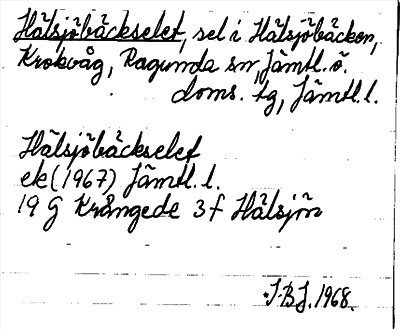 Hälsjöbäckselet, sel i Hälsjöbäcken,
Krokvåg, Ragunda sn, Jämtl. ö.
doms. tg, Jämtl. l.
Hälsjöbäckselet
ek (1967) Jämtl. l.
19 G Krångede 3 f Hälsjön
J.B.J. 1968.